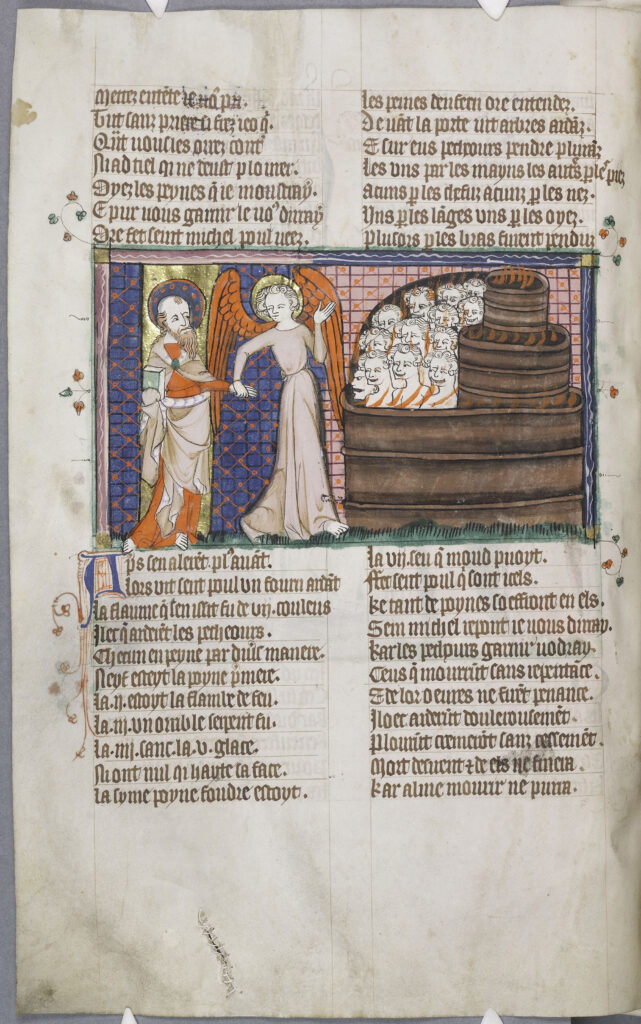 Metez entēte
Dit sanz
Qñt vous les orrez cont̄
Ni ad tiel qi ne deust plorrer.
Oyez les peynes q̄ ie moustray.
E pur vous garnir le vo⁹ dirray
Ore fet seint michel poul veez.
les peines denfern ore entendez.
De uāt la porte vit arbres ardāz.
E sur eus pecheours pendre plurāz
les vns par les mayns les aut̄s p̱ les piez
acuns p̱ les cheus acunz p̱ les nez.
Vns p̱ les lāges vns p̱ les oyez.
Plusors p̱ les bras furent penduz
Aps sen alerēt pl⁹ auāt.
Alors vit seint poul vn fourn ardāt
la flaume q̄ sen issit fu de vij. couleus
Ilec q̄ arderēt les pecheours.
Checun en peyne par diūse manere.
Neyf estoyt la poyne p̄mere.
la .ij. estoyt la flambe de feu.
la .iij. vn orrible serpent fu.
la .iiij. sanc .la .v. glace.
Ni ont nul qi hayte sa face.
la syme poyne foudre estoyt.
la vij. feu q̄ moud puoyt.
Fet seint poul q̄ sont icels.
ke tant de poynes soeffront en els.
Seint michel repont ie vous dirray.
kar les pechurs garnir vodray.
Ceus q̄ mourrūt sans repentāce.
E de lor oeures ne firēt penance.
Iloec arderūt doulerousemēt.
Plorrūt cremerūt sanz cessemēt.
Mort desirent ⁊ de els ne finera
kar alme mourir ne purra.